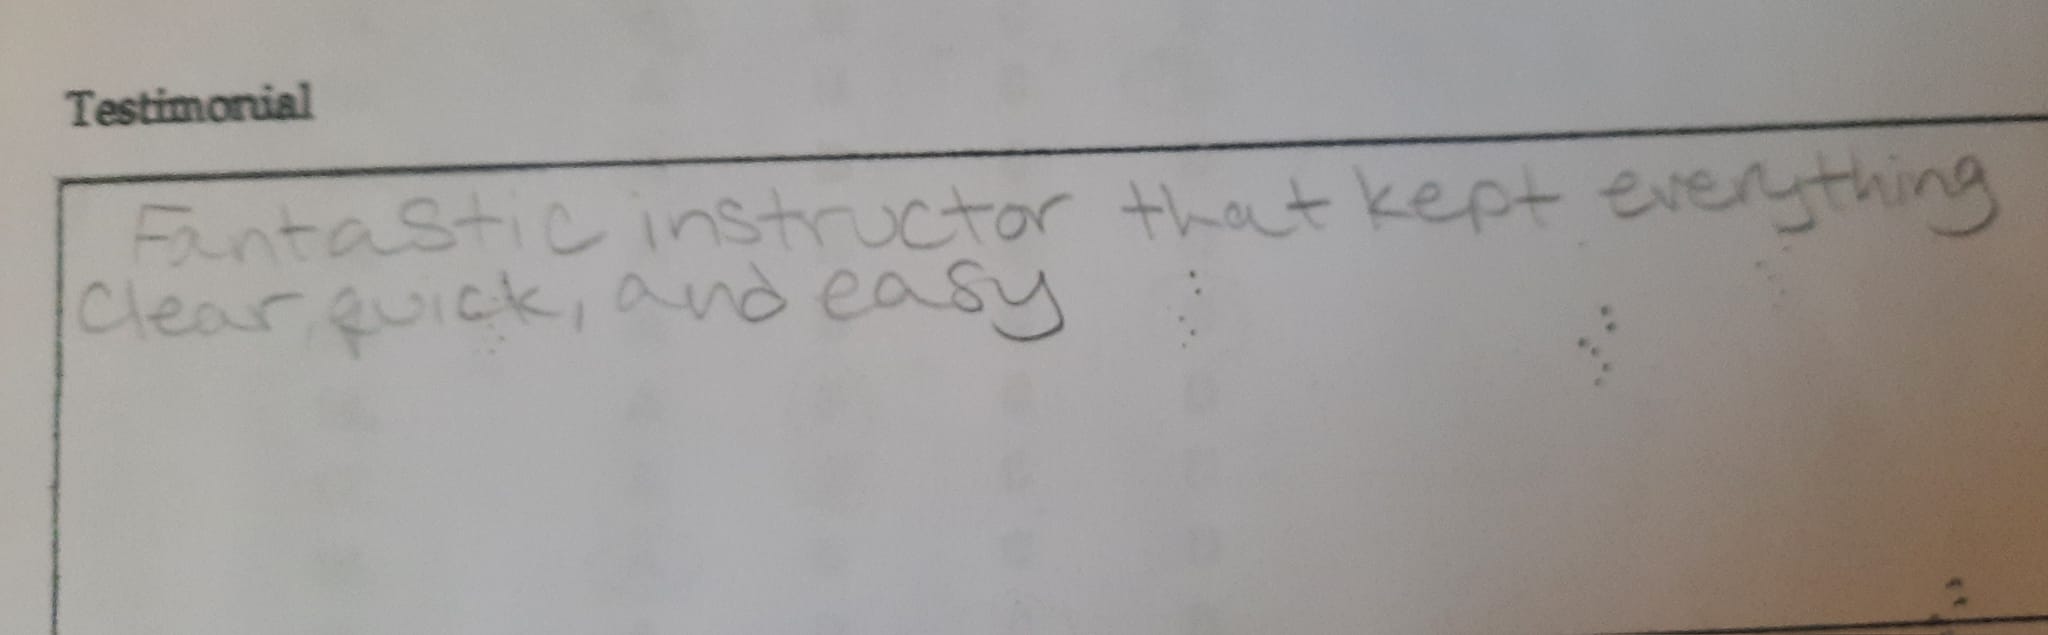 Testimonial
Fantastic instructor that kept everything
clear, quick, and easy